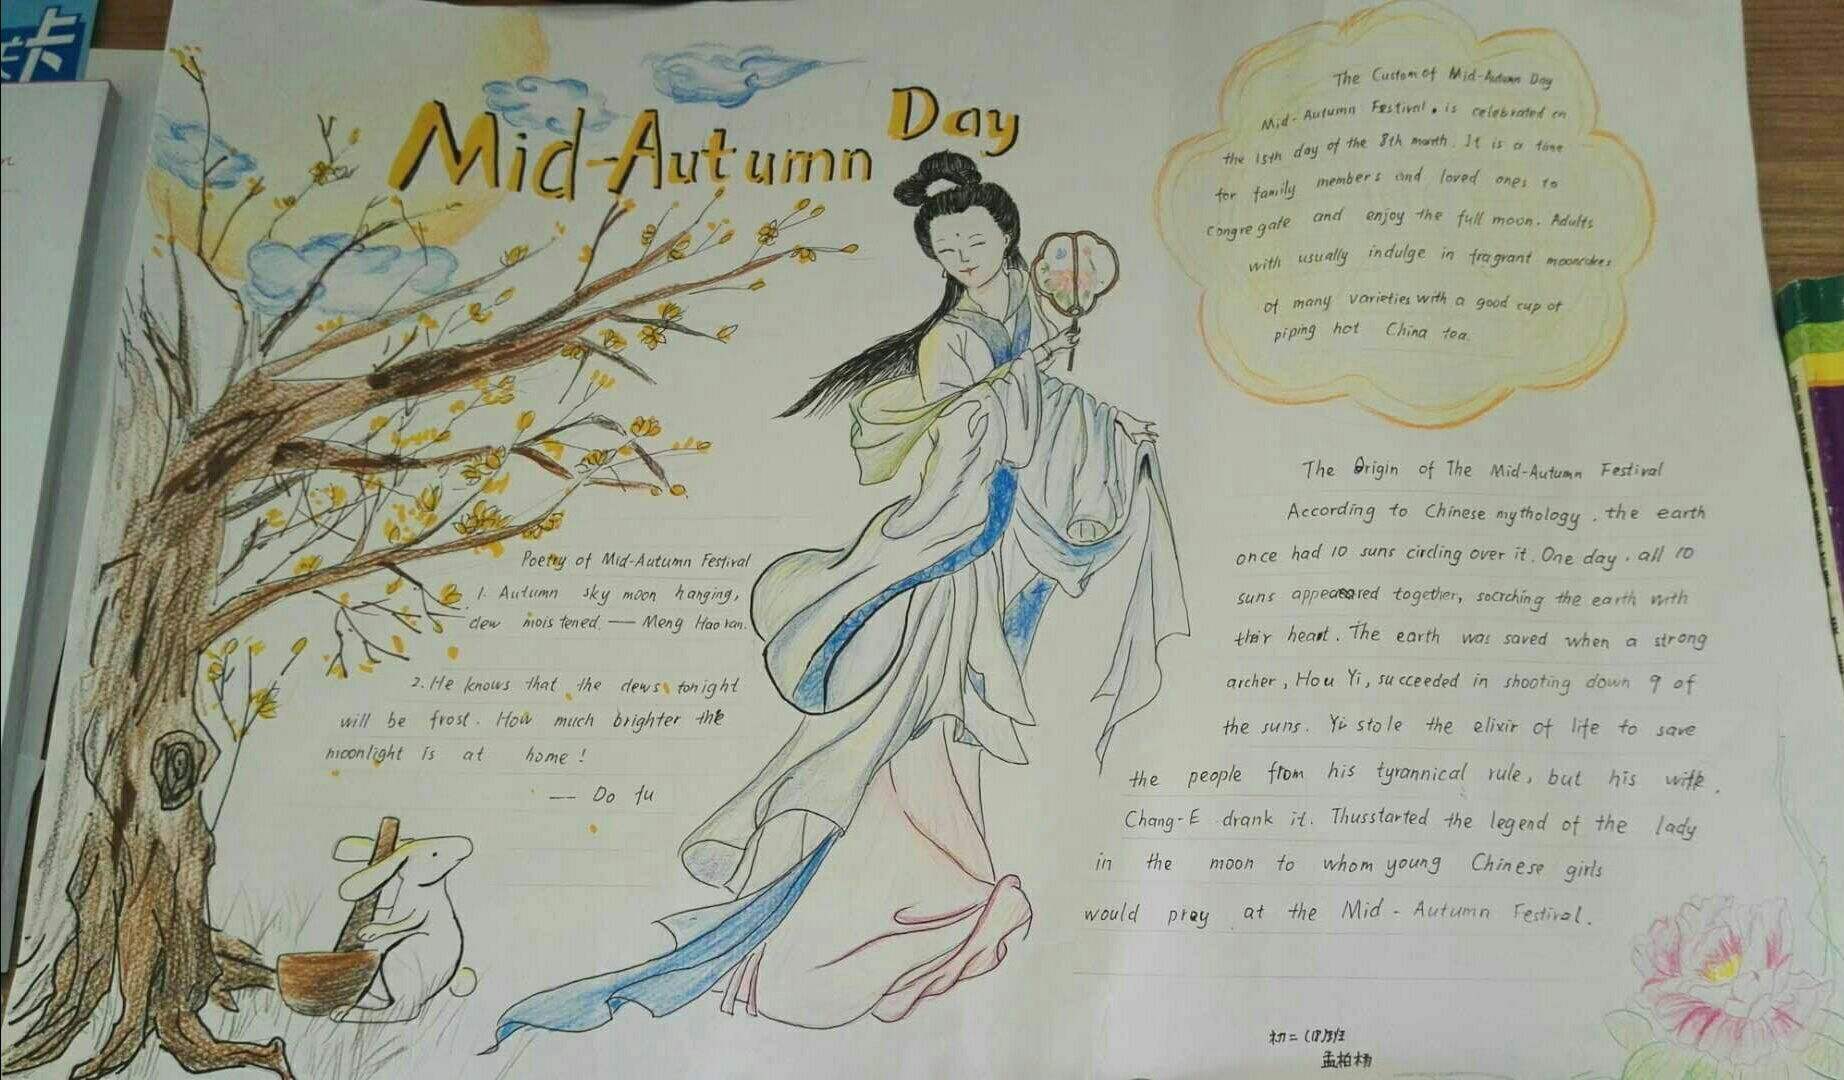 卡
Mid-Autumn Day
The Custom of Mid-Autumn Day
Mid-Autumn Festival. is celebrated on
the 15th day of the 8th month. It is a time
for family members and loved ones to
congregate and enjoy the full moon. Adults
with usually indulge in fragrant mooncakes
of many varieties with a good cup of
piping hot China tea.
Poetry of Mid-Autumn Festival
1. Autumn sky moon hanging,
dew moistened. — Meng Haoran.
2. He knows that the dews tonight
will be frost. How much brighter the
moonlight is at home!
— Do fu
The Origin of The Mid-Autumn Festival
According to Chinese mythology, the earth
once had 10 suns circling over it. One day, all 10
suns appeared together, socrching the earth with
their heat. The earth was saved when a strong
archer, Hou Yi, succeeded in shooting down 9 of
the suns. Yi stole the elixir of life to save
the people from his tyrannical rule, but his wife,
Chang-E drank it. Thusstarted the legend of the lady
in the moon to whom young Chinese girls
would pray at the Mid-Autumn Festival.
初二(18)班
孟柏杨